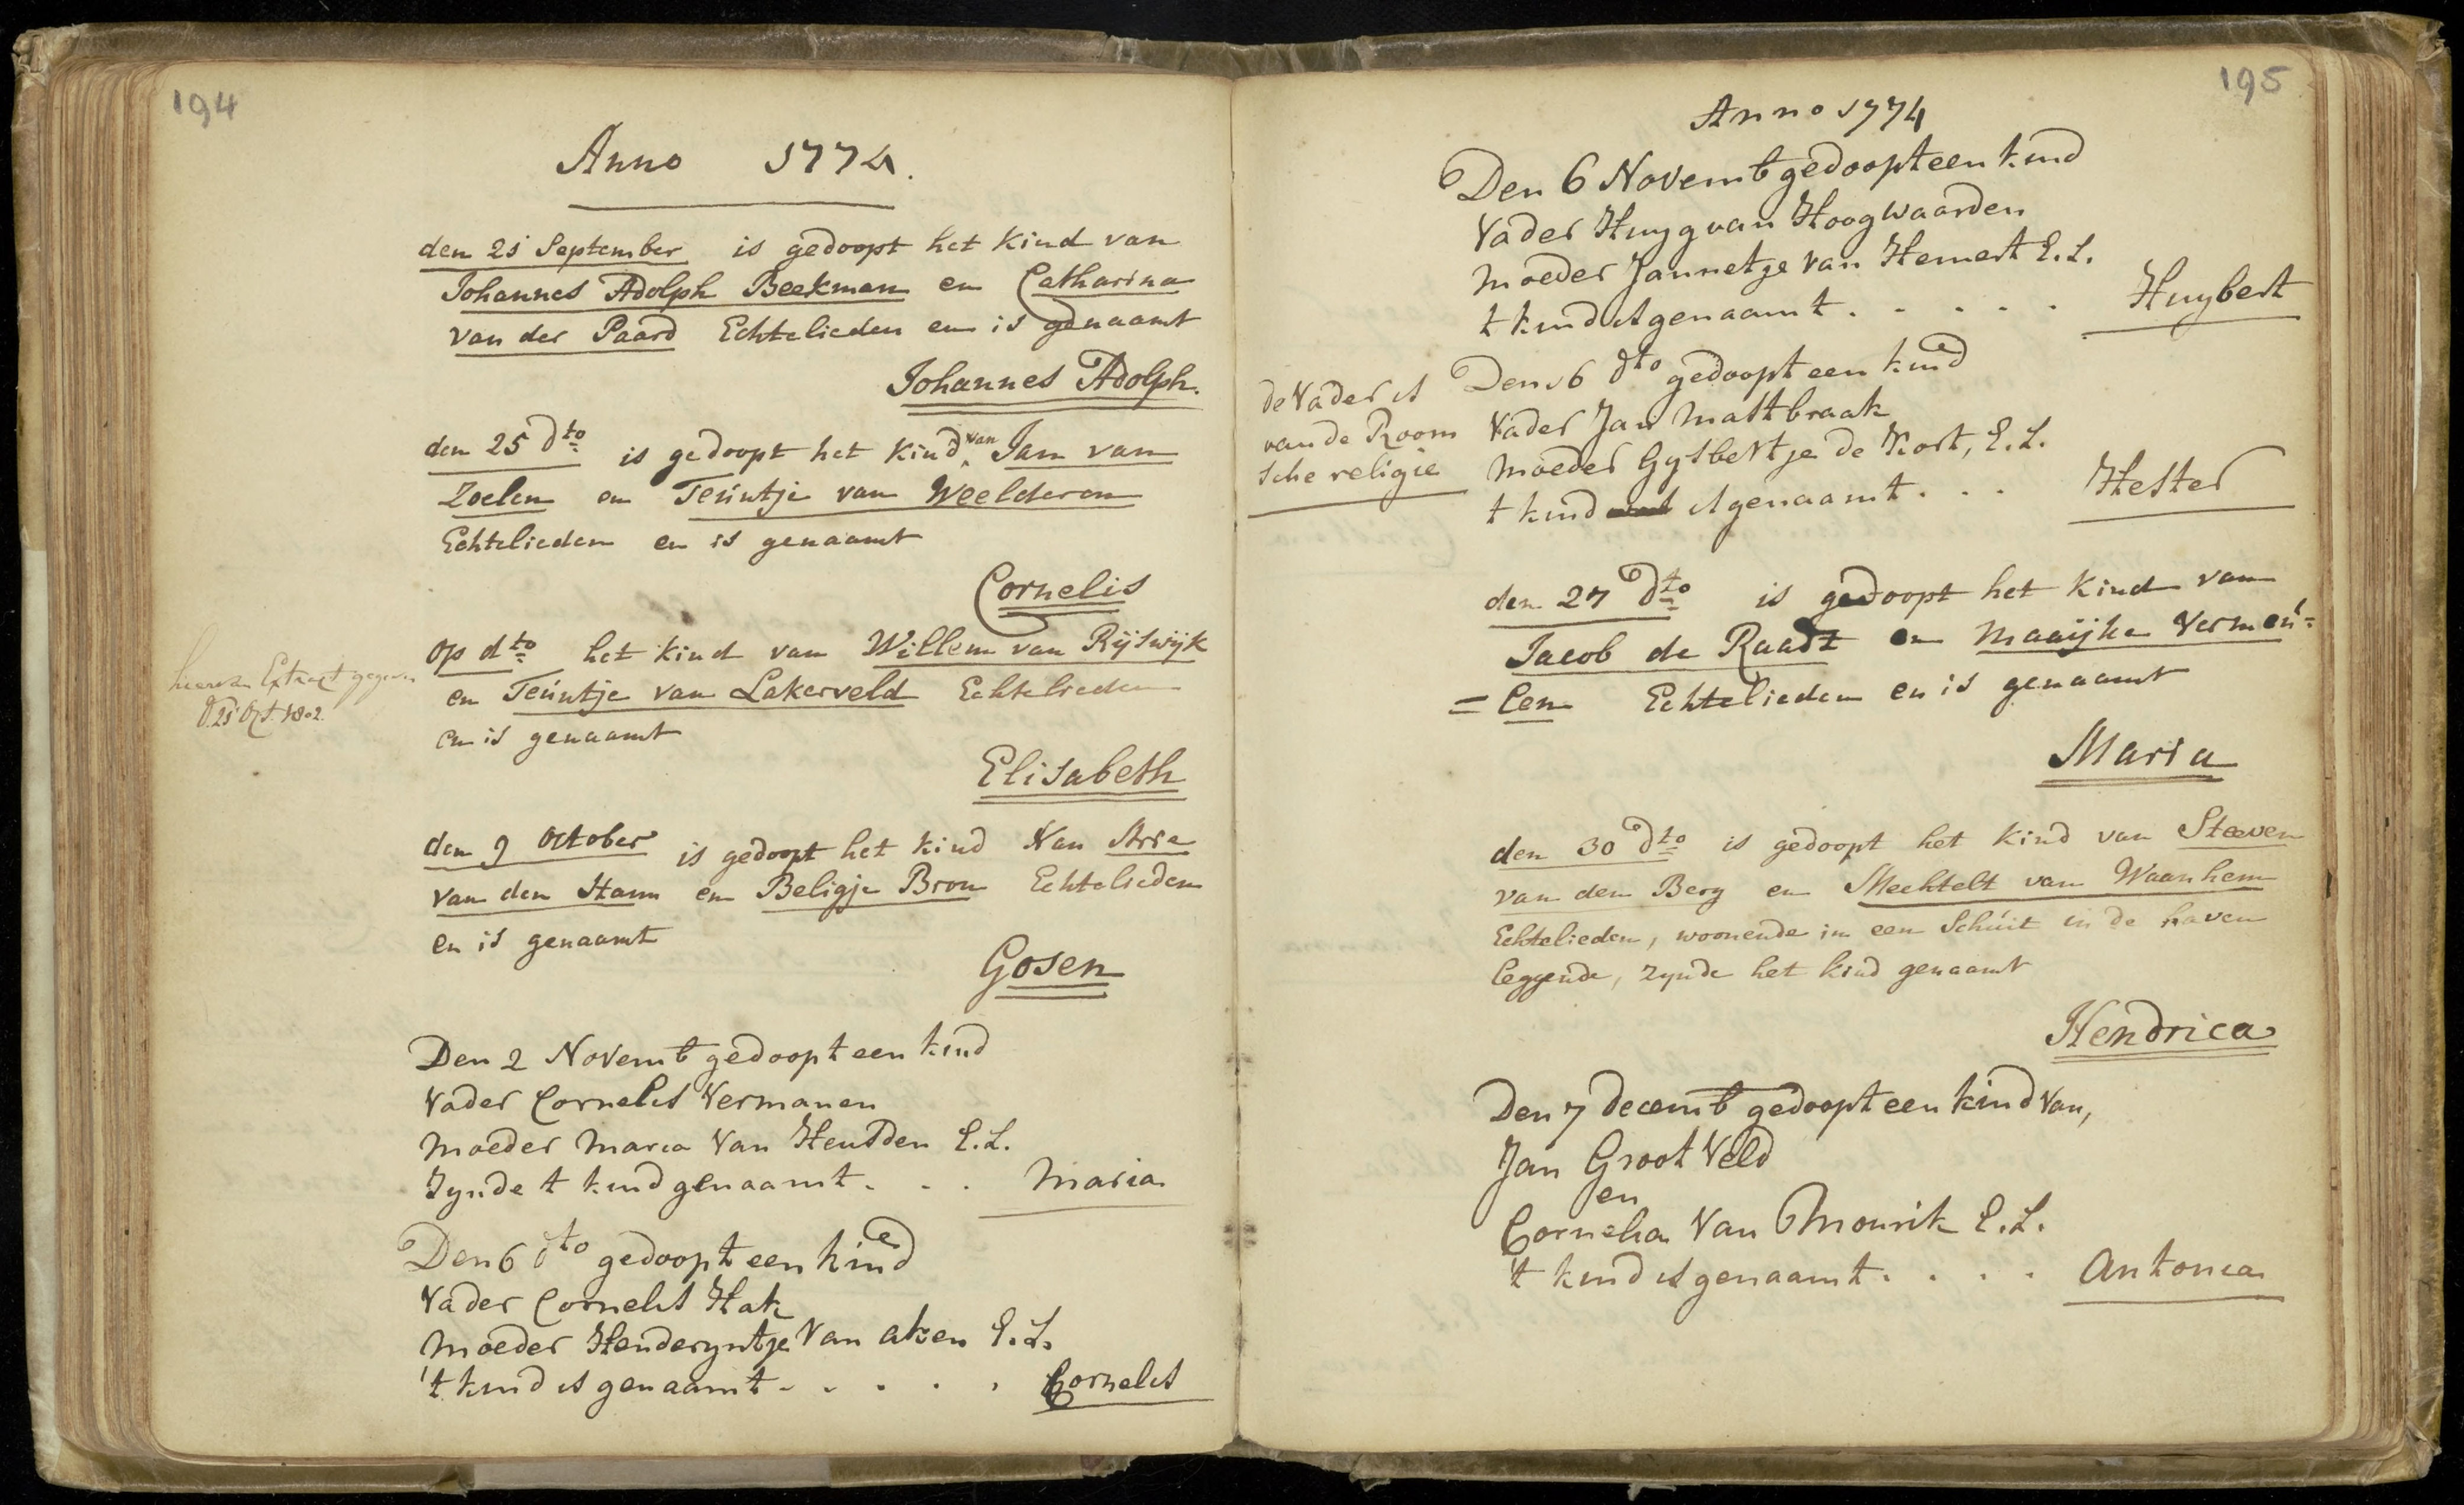 194
Anno 1774.
den 25 September is gedoopt het kind van
Johannes Adolph Beekman en Catharina
van der Paard Echtelieden en is genaamt
Johannes Adolph.
den 25 dto is gedoopt het kind van Jan van
Zoelen en Teuntje van Weelderen
Echtelieden en is genaamt
Cornelis
op dto het kind van Willem van Rijswijk
en Teuntje van Lakerveld Echtelieden
en is genaamt
Elisabeth
hiervan Extract gegeven
d. 25 Oct. 1802.
den 9 October is gedoopt het kind van Arie
van den Ham en Beligje Bron Echtelieden
en is genaamt
Gosen
Den 2 Novemb gedoopt een kind
Vader Cornelis Vermanen
Moeder Maria Van Heusden E.L.
Zynde t kind genaamt . . . Maria
Den 6 dto gedoopt een kind
Vader Cornelis Hak
Moeder Henderyntje Van aken E.L.
't kind is genaamt . . . . . Cornelis
195
Anno 1774
Den 6 Novemb gedoopt een kind
Vader Huyg van Hoogwaarden
Moeder Jannetje van Hemert E.L.
t kind is genaamt . . . . . Huybert
de Vader is
van de Room
sche religie
Den 16 dto gedoopt een kind
Vader Jan Mastbraak
Moeder Gysbertje de Kort, E.L.
t kind is genaamt . . . Hester
den 27 dto is gedoopt het kind van
Jacob de Raadt en Maaijke Vermeu=
=len Echtelieden en is genaamt
Maria
den 30 dto is gedoopt het kind van Steeven
van den Berg en Mechtelt van Waanhem
Echtelieden, woonende in een Schuit in de haven
leggende, zynde het kind genaamt
Hendrica
Den 7 decemb gedoopt een kind Van,
Jan Groot Veld
en
Cornelia Van Mourik E.L.
't kind is genaamt . . . . Antonia